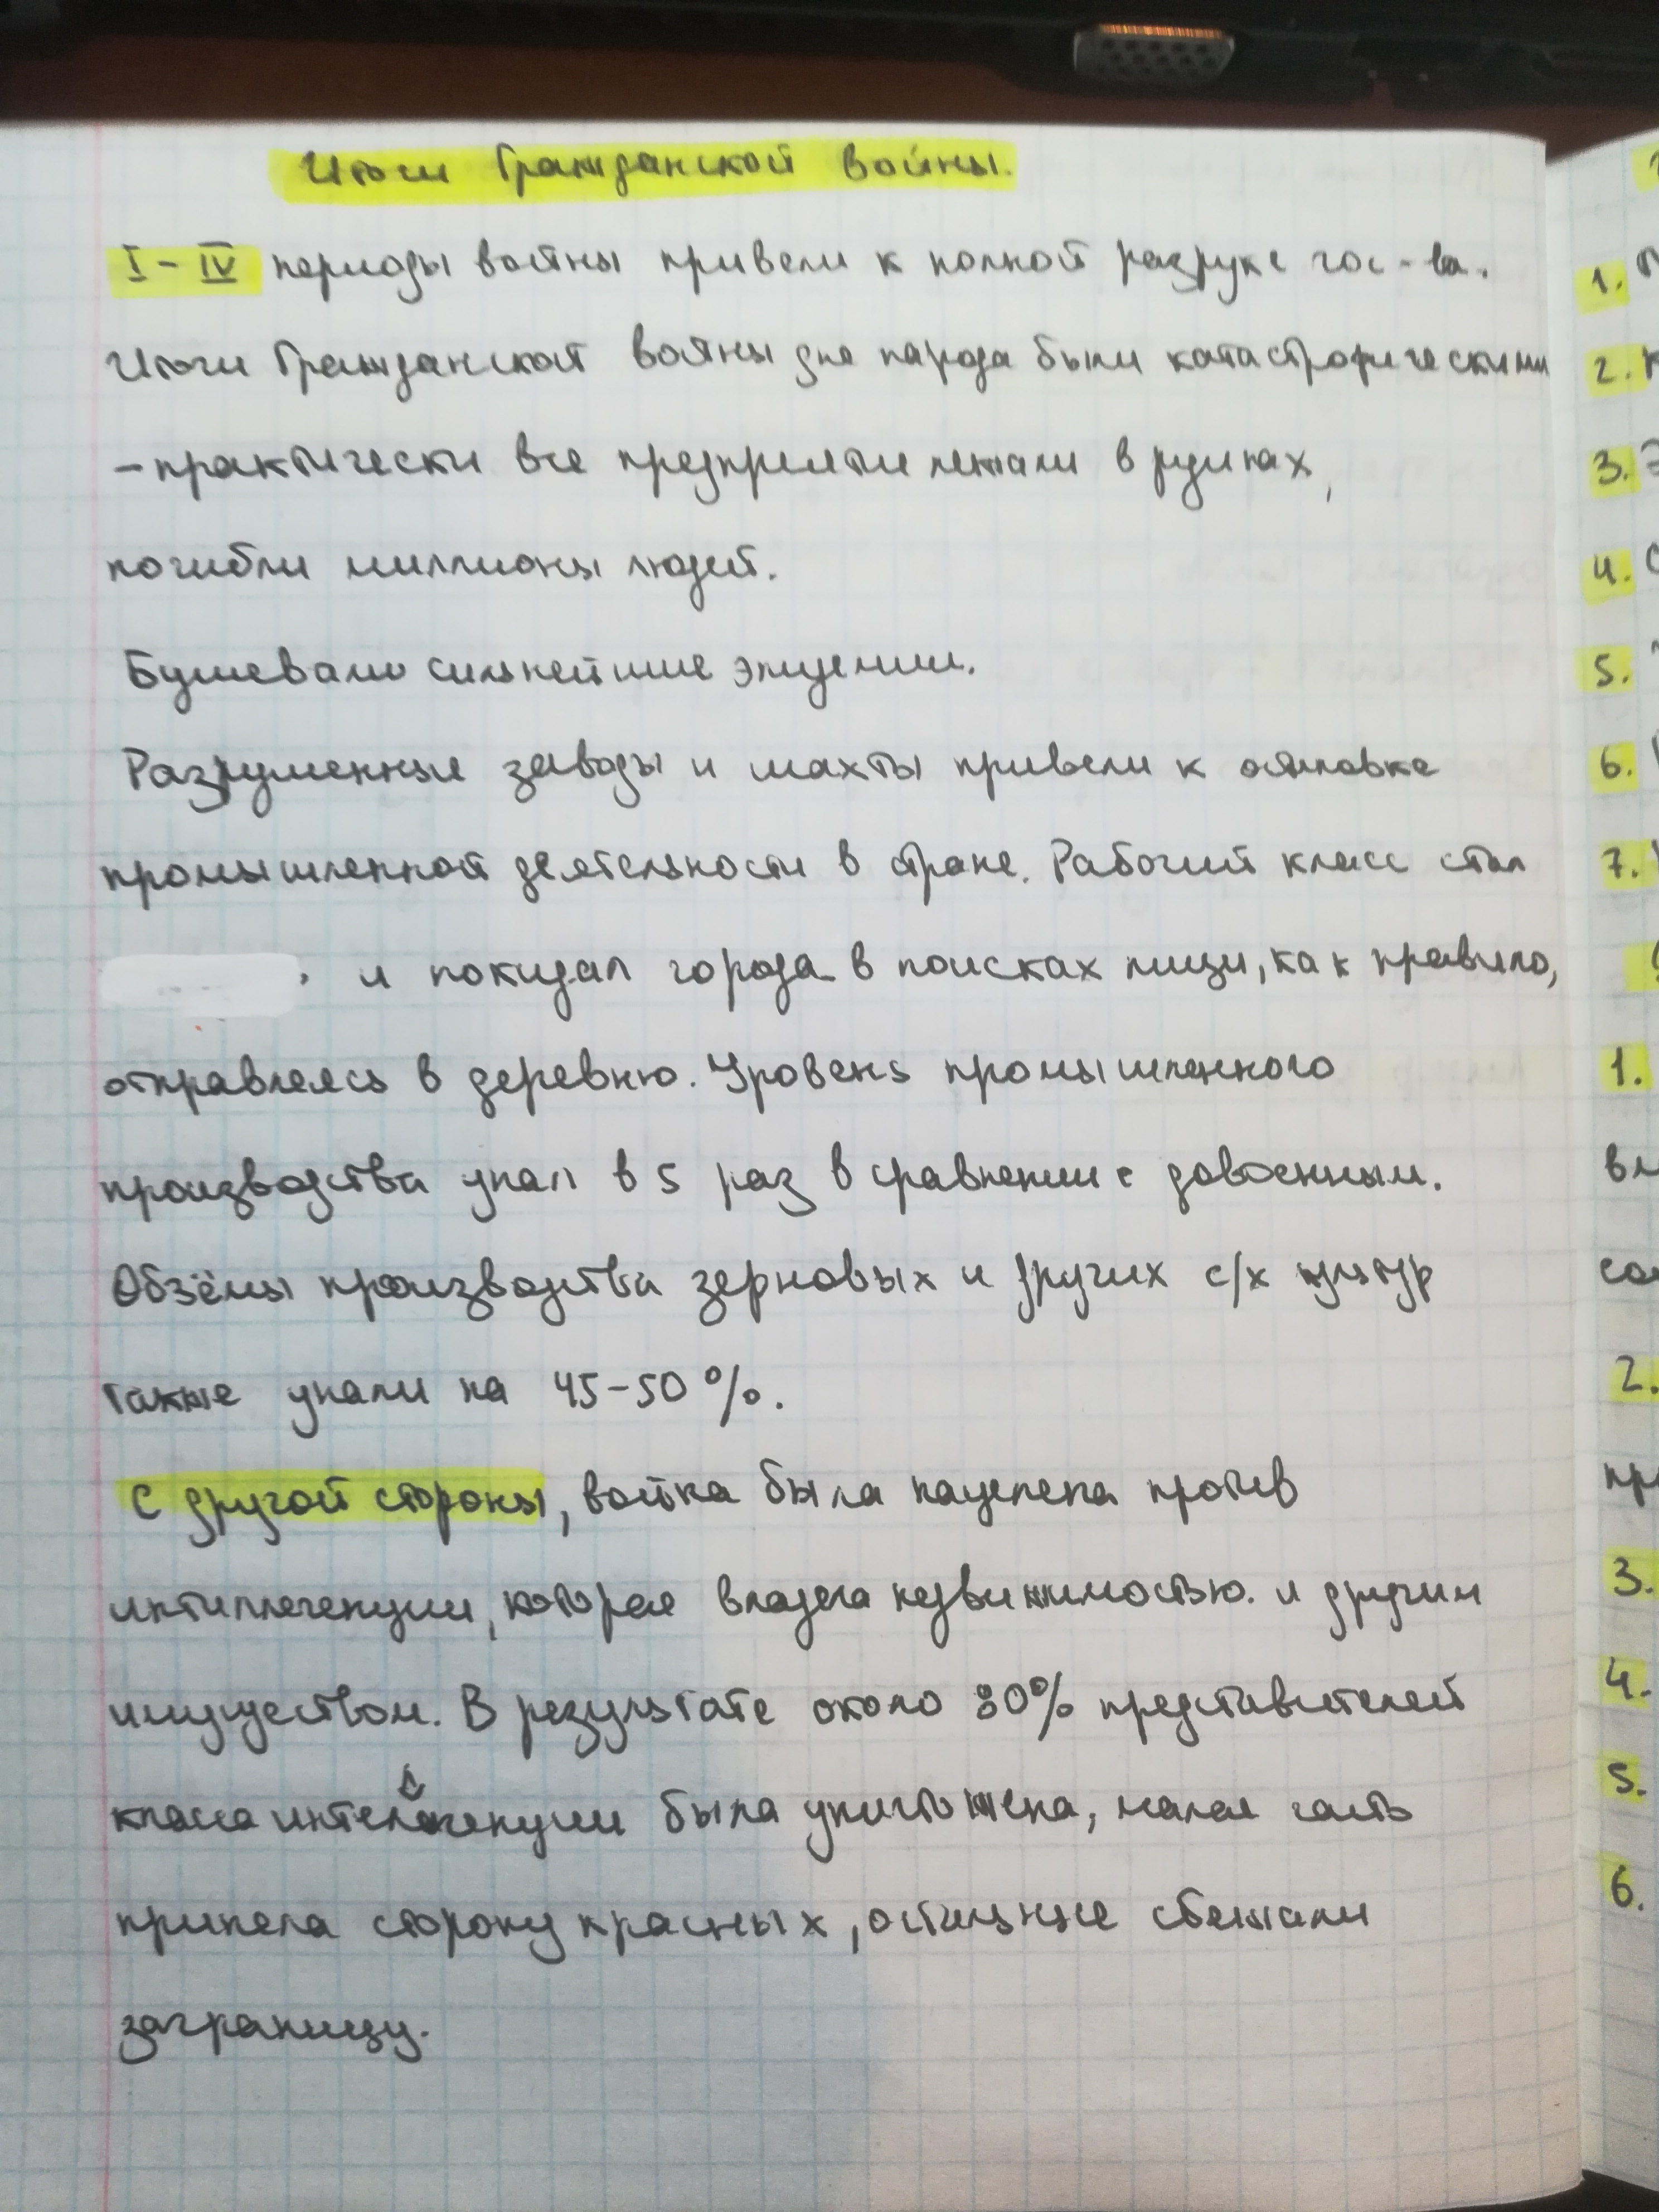 Итоги Гражданской войны.
I - IV периоды войны привели к полной разрухе гос-ва.
Итоги Гражданской войны для народа были катастрофическими
- практически все предприятия лежали в руинах,
погибли миллионы людей.
Бушевали сильнейшие эпидемии.
Разрушенные заводы и шахты привели к
промышленной деятельности в стране. Рабочий класс стал
и покидал города в поисках пищи, как правило,
отправляясь в деревню. Уровень промышленного
производства упал в 5 раз в сравнении с довоенным.
Объёмы производства зерновых и других с/х культур
также упали на 45-50%.
С другой стороны, война была нацелена против
интиллегенции, которая владела недвижимостью. и другим
имуществом. В результате около 80% представителей
класса интеллегенции была уничтожена, малая часть
приняла сторону красных, остальные сбежали
заграницу.
1.
2.
3.
4.
5.
6.
7.
1.
2.
3.
4.
5.
6.